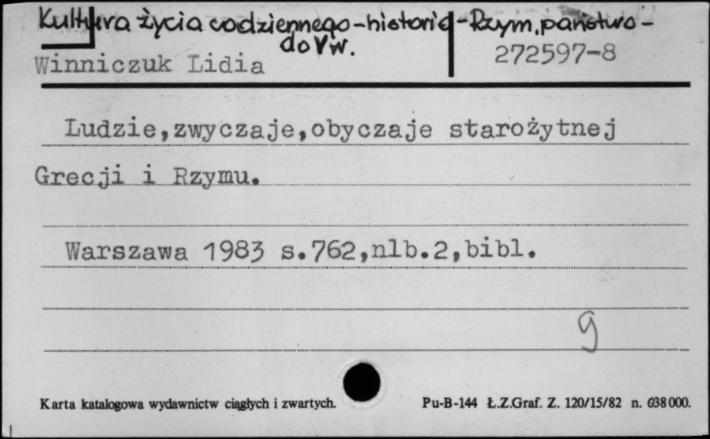 Kultura życia codziennego-historia-Rzym, państwo-
do V w.
Winniczuk Lidia
272597-8
Ludzie,zwyczaje,obyczaje starożytnej
Grecji i Rzymu.
Warszawa 1983 s.762,nlb.2,bibl.
g
Karta katalogowa wydawnictw ciągłych i zwartych.
Pu-B-144 Ł.Z.Graf. Z. 120/15/82 n. 638000.